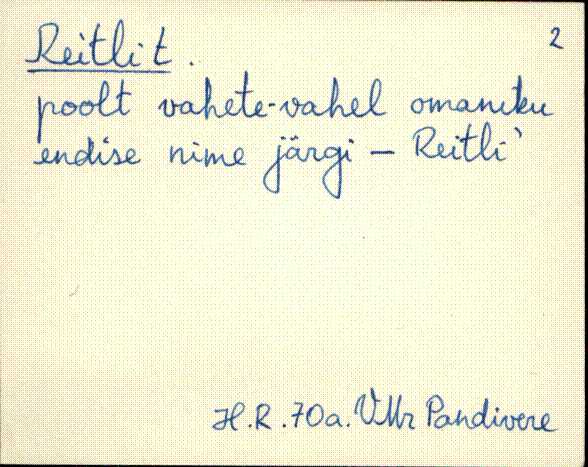 Reitli t. 2
poolt vahete-vahel omaniku
endise nime järgi – Reitli'
H.R. 70a. VMr Pandivere